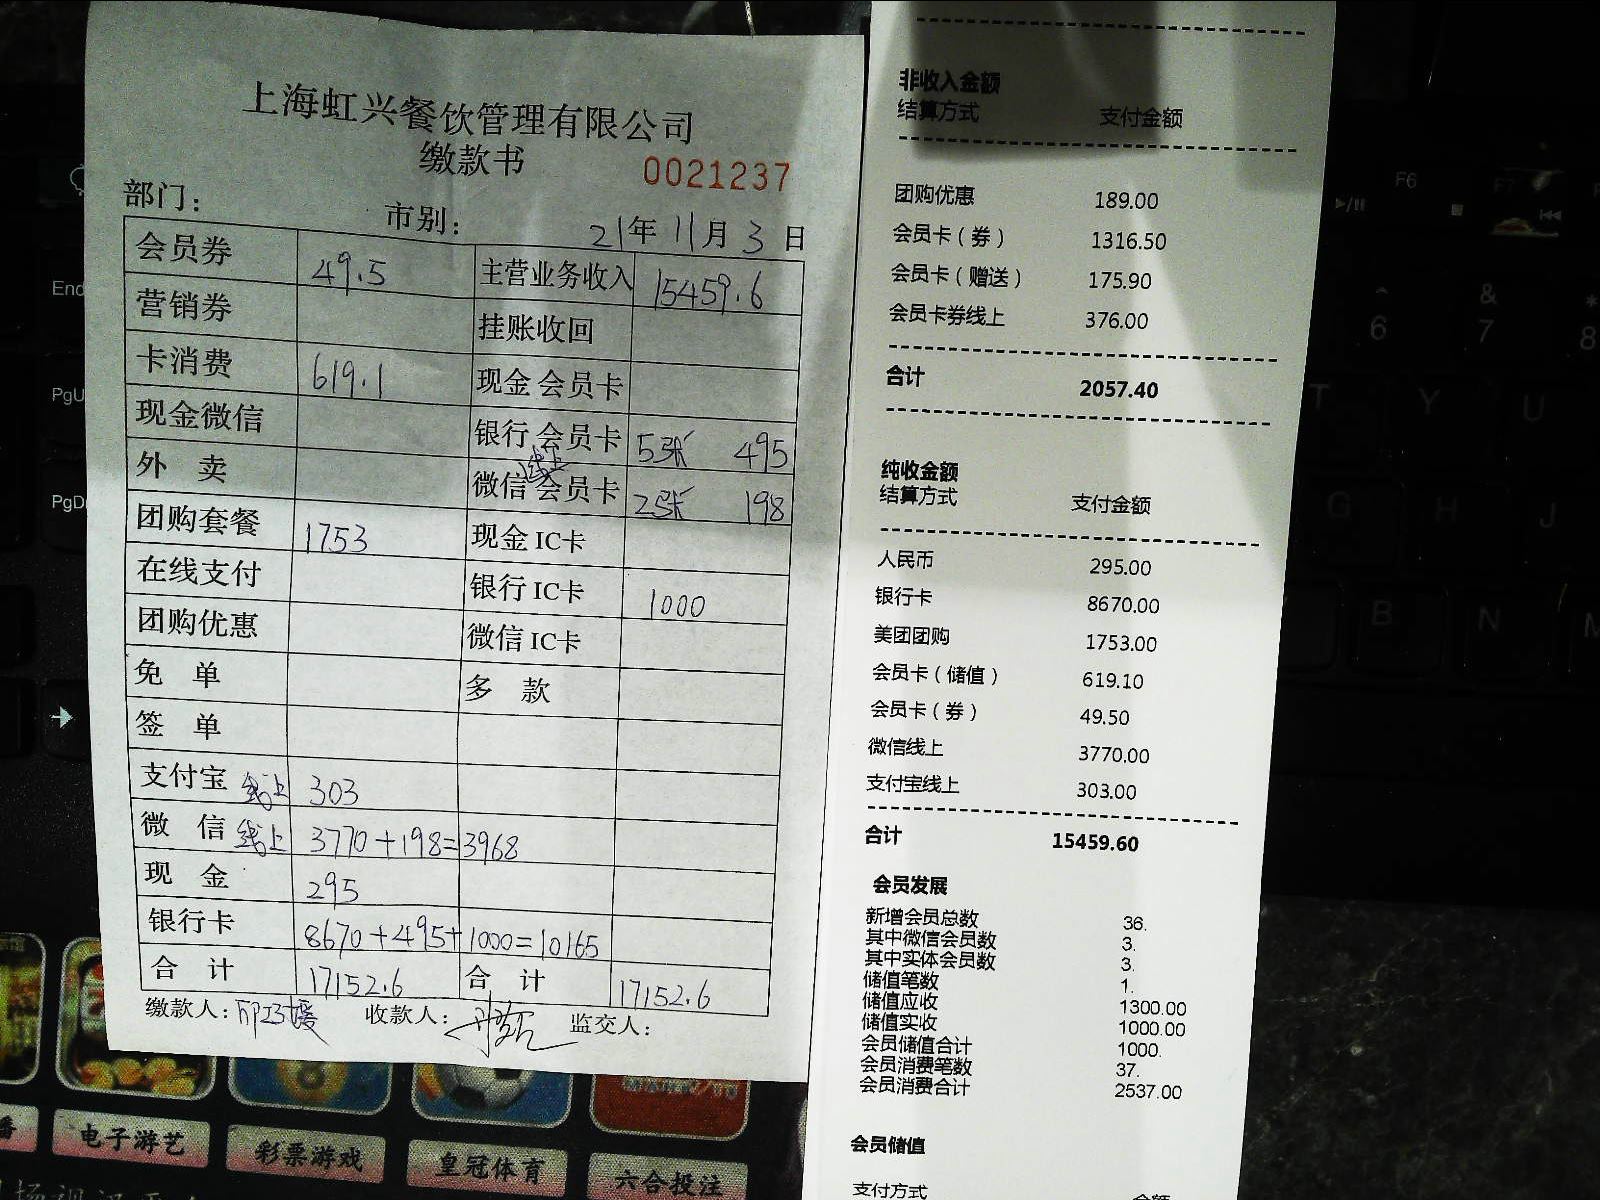 上海虹兴餐饮管理有限公司
缴款书
0021237
部门:
市别:
21年11月3日
会员券 49.5 主营业务收入 15459.6
营销券 挂账收回
卡消费 619.1 现金会员卡
现金微信 银行会员卡 5张 495
外卖 微信线上会员卡 2张 198
团购套餐 1753 现金IC卡
在线支付 银行IC卡 1000
团购优惠 微信IC卡
免单 多款
签单
支付宝线上 303
微信线上 3770+198=3968
现金 295
银行卡 8670+495+1000=10165
合计 17152.6 合计 17152.6
缴款人: 收款人: 监交人:
非收入金额
结算方式 支付金额
团购优惠 189.00
会员卡（券） 1316.50
会员卡（赠送） 175.90
会员卡券线上 376.00
合计 2057.40
纯收金额
结算方式 支付金额
人民币 295.00
银行卡 8670.00
美团团购 1753.00
会员卡（储值） 619.10
会员卡（券） 49.50
微信线上 3770.00
支付宝线上 303.00
合计 15459.60
会员发展
新增会员总数 36.
其中微信会员数 3.
其中实体会员数 3.
储值笔数 1.
储值应收 1300.00
储值实收 1000.00
会员储值合计 1000.
会员消费笔数 37.
会员消费合计 2537.00
会员储值
支付方式 金额
End
PgU
PgD
F6
F7
&
6
7
8
T
Y
U
G
H
J
B
N
M
电子游艺
彩票游戏
皇冠体育
六合投注